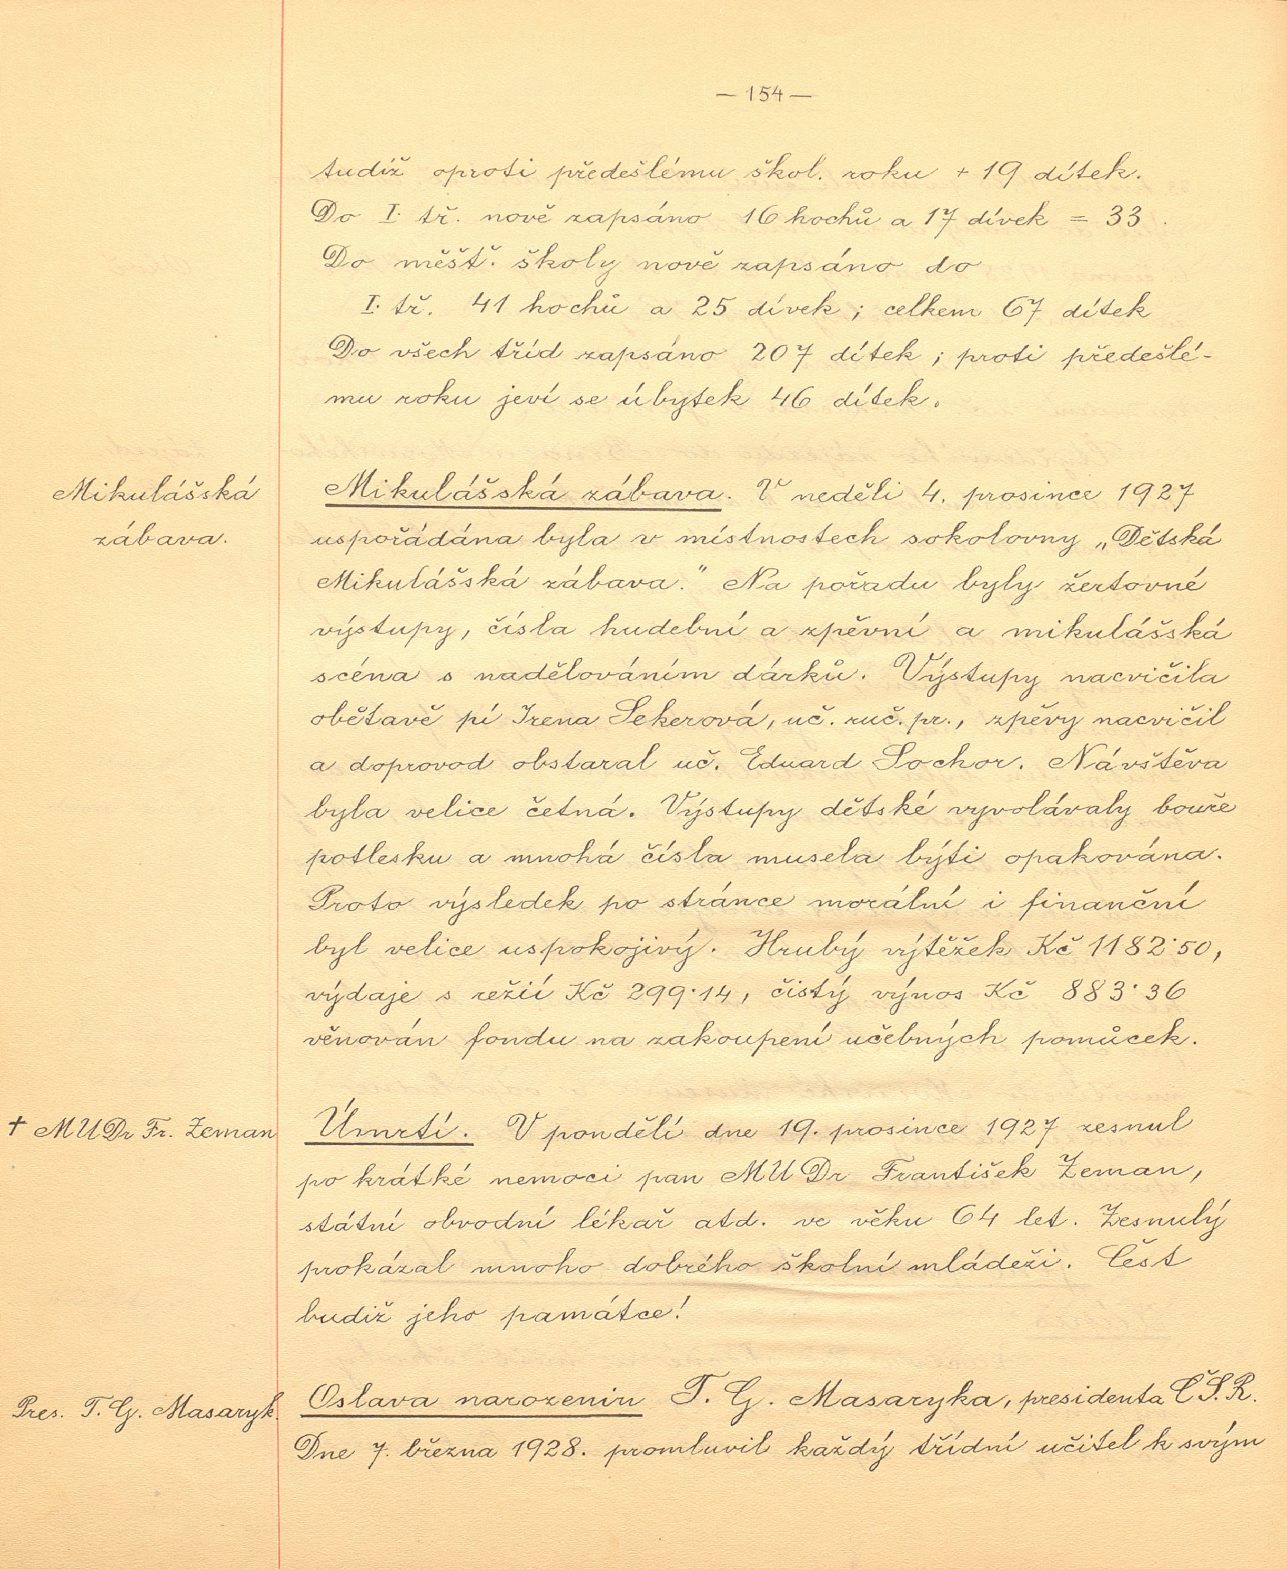 — 154 —
tudíž oproti předešlému škol. roku + 19 dítek.
Do I. tř. nově zapsáno 16 hochů a 17 dívek = 33.
Do měšť. školy nově zapsáno do
I. tř. 41 hochů a 25 dívek; celkem 67 dítek
Do všech tříd zapsáno 207 dítek; proti předešlé-
mu roku jeví se úbytek 46 dítek.
Mikulášská
zábava.
Mikulášská zábava. V neděli 4. prosince 1927
uspořádána byla v místnostech sokolovny „Dětská
Mikulášská zábava." Na pořadu byly žertovné
výstupy, čísla hudební a zpěvní a mikulášská
scéna s nadělováním dárků. Výstupy nacvičila
obětavě pí Irena Sekerová, uč. ruč. pr., zpěvy nacvičil
a doprovod obstaral uč. Eduard Sochor. Návštěva
byla velice četná. Výstupy dětské vyvolávaly bouře
potlesku a mnohá čísla musela býti opakována.
Proto výsledek po stránce morální i finanční
byl velice uspokojivý. Hrubý výtěžek Kč 1182·50,
výdaje s režií Kč 299·14, čistý výnos Kč 883·36
věnován fondu na zakoupení učebných pomůcek.
† MUDr Fr. Zeman
Úmrtí. V pondělí dne 19. prosince 1927 zesnul
po krátké nemoci pan MUDr František Zeman,
státní obvodní lékař atd. ve věku 64 let. Zesnulý
prokázal mnoho dobrého školní mládeži. Čest
budiž jeho památce!
Pres. T. G. Masaryk.
Oslava narozenin T. G. Masaryka, presidenta Č.S.R.
Dne 7. března 1928. promluvil každý třídní učitel k svým